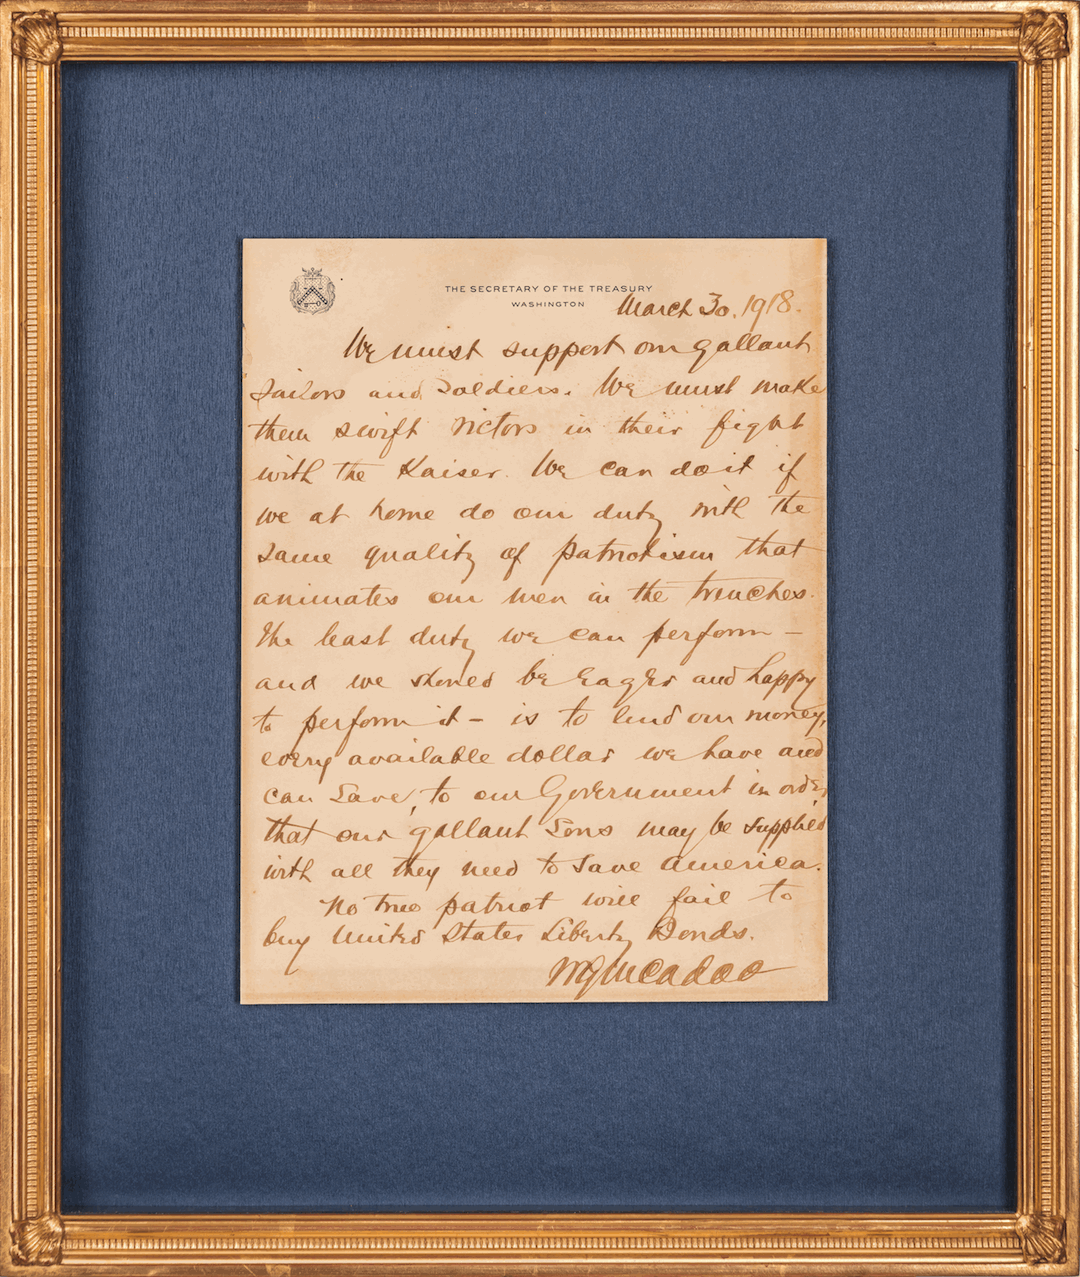 THE SECRETARY OF THE TREASURY
WASHINGTON
March 30. 1918.
We must support our gallant
sailors and soldiers. We must make
them swift victors in their fight
with the Kaiser. We can do it if
we at home do our duty with the
same quality of patriotism that
animates our men in the trenches.
The least duty we can perform –
and we should be eager and happy
to perform it – is to lend our money,
every available dollar we have and
can save, to our Government in order
that our gallant sons may be supplied
with all they need to save America.
No true patriot will fail to
buy United States Liberty Bonds.
WGMcAdoo